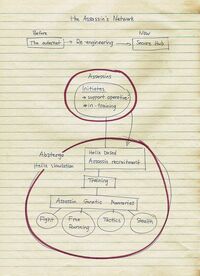 the Assassin's Network
Before
Now
The internet
Re-engineering
Secure Hub
Assassins
Initiates
→ support operative
→ in-training
Abstergo
Helix simulation
Helix based
Assassin recruitment
Training
Assassin Genetic Memories
Fight
Free
Running
Tactics
Stealth